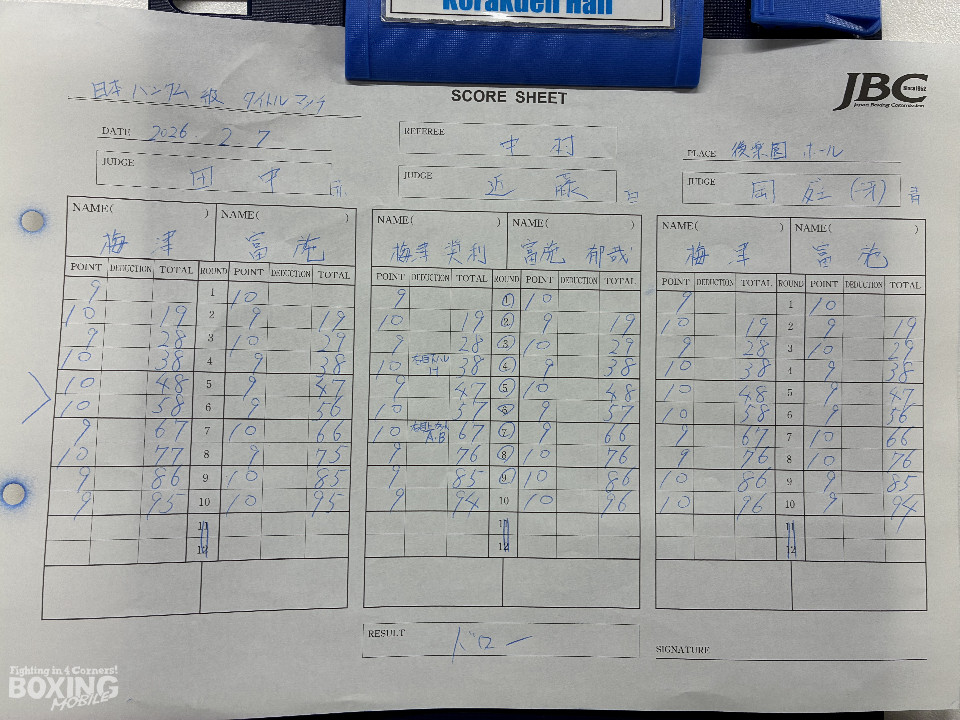 Korakuen Hall
日本 バンタム級 タイトルマッチ
SCORE SHEET
JBC
Since1952
Japan Boxing Commission
DATE 2026. 2 7
REFEREE 中村
PLACE 後楽園 ホール
JUDGE 田中
JUDGE 近藤
JUDGE 岡庭 (洋) 青
NAME( ) NAME( )
梅津 富施
POINT DEDUCTION TOTAL ROUND POINT DEDUCTION TOTAL
9 1 10
10 19 2 9 19
9 28 3 10 29
10 38 4 9 38
10 48 5 9 47
10 58 6 9 56
9 67 7 10 66
10 77 8 9 75
9 86 9 10 85
9 95 10 10 95
11
12
NAME( ) NAME( )
梅津 奨利 富施 郁哉
POINT DEDUCTION TOTAL ROUND POINT DEDUCTION TOTAL
9 1 10
10 19 2 9 19
9 28 3 10 29
10 38 4 9 38
9 47 5 10 48
10 57 6 9 57
10 A.B 67 7 9 66
9 76 8 10 76
9 85 9 10 86
9 94 10 10 96
11
12
NAME( ) NAME( )
梅津 富施
POINT DEDUCTION TOTAL ROUND POINT DEDUCTION TOTAL
9 1 10
10 19 2 9 19
9 28 3 10 29
10 38 4 9 38
10 48 5 9 47
10 58 6 9 56
9 67 7 10 66
9 76 8 10 76
10 86 9 9 85
10 96 10 9 94
11
12
RESULT ドロー
SIGNATURE
Fighting in 4 Corners!
BOXING
MOBILE